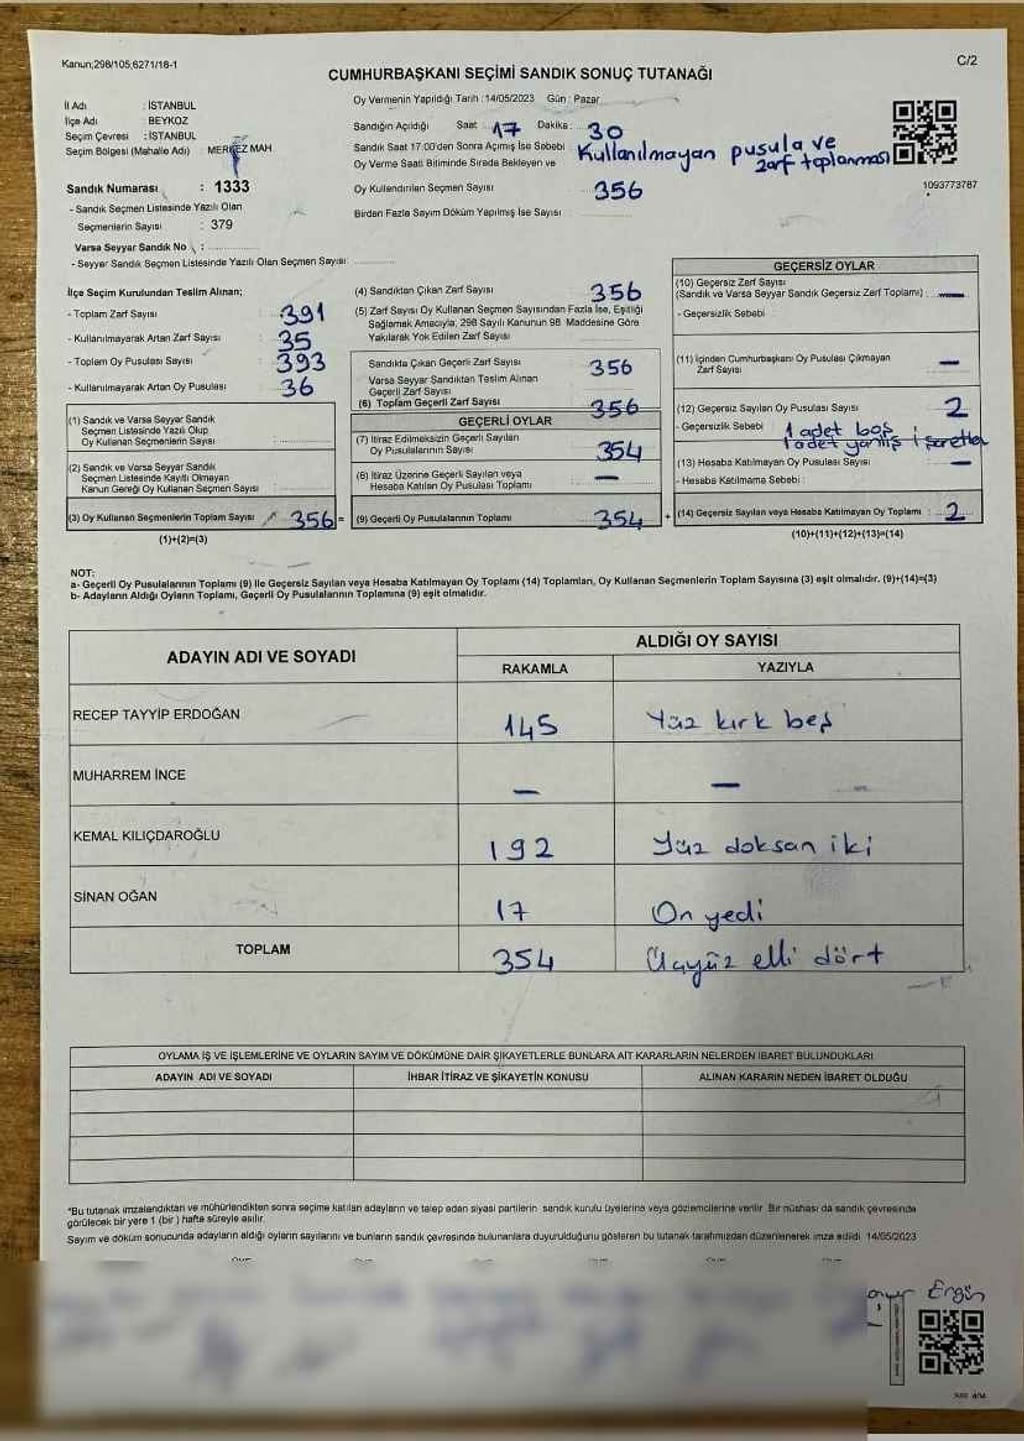 Kanun;298/105,6271/18-1
C/2
CUMHURBAŞKANI SEÇİMİ SANDIK SONUÇ TUTANAĞI
İl Adı : İSTANBUL
İlçe Adı : BEYKOZ
Seçim Çevresi : İSTANBUL
Seçim Bölgesi (Mahalle Adı) : MERKEZ MAH.
Sandık Numarası : 1333
- Sandık Seçmen Listesinde Yazılı Olan
Seçmenlerin Sayısı : 379
Varsa Seyyar Sandık No :
- Seyyar Sandık Seçmen Listesinde Yazılı Olan Seçmen Sayısı:
Oy Vermenin Yapıldığı Tarih :14/05/2023 Gün : Pazar
Sandığın Açıldığı Saat : 17 Dakika : 30
Sandık Saat 17:00'den Sonra Açımış İse Sebebi Kullanılmayan pusula ve
zarf toplanması
Oy Verme Saati Bitiminde Sırada Bekleyen ve
Oy Kullandırılan Seçmen Sayısı 356
Birden Fazla Sayım Döküm Yapılmış İse Sayısı
1093773787
İlçe Seçim Kurulundan Teslim Alınan;
- Toplam Zarf Sayısı : 391
- Kullanılmayarak Artan Zarf Sayısı : 35
- Toplam Oy Pusulası Sayısı : 393
- Kullanılmayarak Artan Oy Pusulası : 36
(1) Sandık ve Varsa Seyyar Sandık
Seçmen Listesinde Yazılı Olup
Oy Kullanan Seçmenlerin Sayısı :
(2) Sandık ve Varsa Seyyar Sandık
Seçmen Listesinde Kayıtlı Olmayan
Kanun Gereği Oy Kullanan Seçmen Sayısı :
(3) Oy Kullanan Seçmenlerin Toplam Sayısı 356 =
(1)+(2)=(3)
(4) Sandıktan Çıkan Zarf Sayısı 356
(5) Zarf Sayısı Oy Kullanan Seçmen Sayısından Fazla İse, Eşitliği
Sağlamak Amacıyla; 298 Sayılı Kanunun 98. Maddesine Göre
Yakılarak Yok Edilen Zarf Sayısı
Sandıkta Çıkan Geçerli Zarf Sayısı 356
Varsa Seyyar Sandıktan Teslim Alınan
Geçerli Zarf Sayısı
(6) Toplam Geçerli Zarf Sayısı 356
GEÇERLİ OYLAR
(7) İtiraz Edilmeksizin Geçerli Sayılan
Oy Pusulalarının Sayısı 354
(8) İtiraz Üzerine Geçerli Sayılan veya
Hesaba Katılan Oy Pusulası Toplamı : —
(9) Geçerli Oy Pusulalarının Toplamı 354 +
GEÇERSİZ OYLAR
(10) Geçersiz Zarf Sayısı
(Sandık ve Varsa Seyyar Sandık Geçersiz Zarf Toplamı) : —
- Geçersizlik Sebebi :
(11) İçinden Cumhurbaşkanı Oy Pusulası Çıkmayan
Zarf Sayısı —
(12) Geçersiz Sayılan Oy Pusulası Sayısı 2
- Geçersizlik Sebebi : 1 adet boş
1 adet yanlış işaretler
(13) Hesaba Katılmayan Oy Pusulası Sayısı —
- Hesaba Katılmama Sebebi :
(14) Geçersiz Sayılan veya Hesaba Katılmayan Oy Toplamı : 2
(10)+(11)+(12)+(13)=(14)
NOT:
a- Geçerli Oy Pusulalarının Toplamı (9) ile Geçersiz Sayılan veya Hesaba Katılmayan Oy Toplamı (14) Toplamları, Oy Kullanan Seçmenlerin Toplam Sayısına (3) eşit olmalıdır. (9)+(14)=(3)
b- Adayların Aldığı Oyların Toplamı, Geçerli Oy Pusulalarının Toplamına (9) eşit olmalıdır.
ADAYIN ADI VE SOYADI
ALDIĞI OY SAYISI
RAKAMLA YAZIYLA
RECEP TAYYİP ERDOĞAN 145 Yüz kırk beş
MUHARREM İNCE — —
KEMAL KILIÇDAROĞLU 192 Yüz doksan iki
SİNAN OĞAN 17 On yedi
TOPLAM 354 Üçyüz elli dört
OYLAMA İŞ VE İŞLEMLERİNE VE OYLARIN SAYIM VE DÖKÜMÜNE DAİR ŞİKAYETLERLE BUNLARA AİT KARARLARIN NELERDEN İBARET BULUNDUKLARI
ADAYIN ADI VE SOYADI İHBAR İTİRAZ VE ŞİKAYETİN KONUSU ALINAN KARARIN NEDEN İBARET OLDUĞU
*Bu tutanak imzalandıktan ve mühürlendikten sonra seçime katılan adayların ve talep eden siyasi partilerin sandık kurulu üyelerine veya gözlemcilerine verilir. Bir nüshası da sandık çevresinde
görülecek bir yere 1 (bir ) hafta süreyle asılır.
Sayım ve döküm sonucunda adayların aldığı oyların sayılarını ve bunların sandık çevresinde bulunanlara duyurulduğunu gösteren bu tutanak tarafımızdan düzenlenerek imza edildi 14/05/2023
Ergün